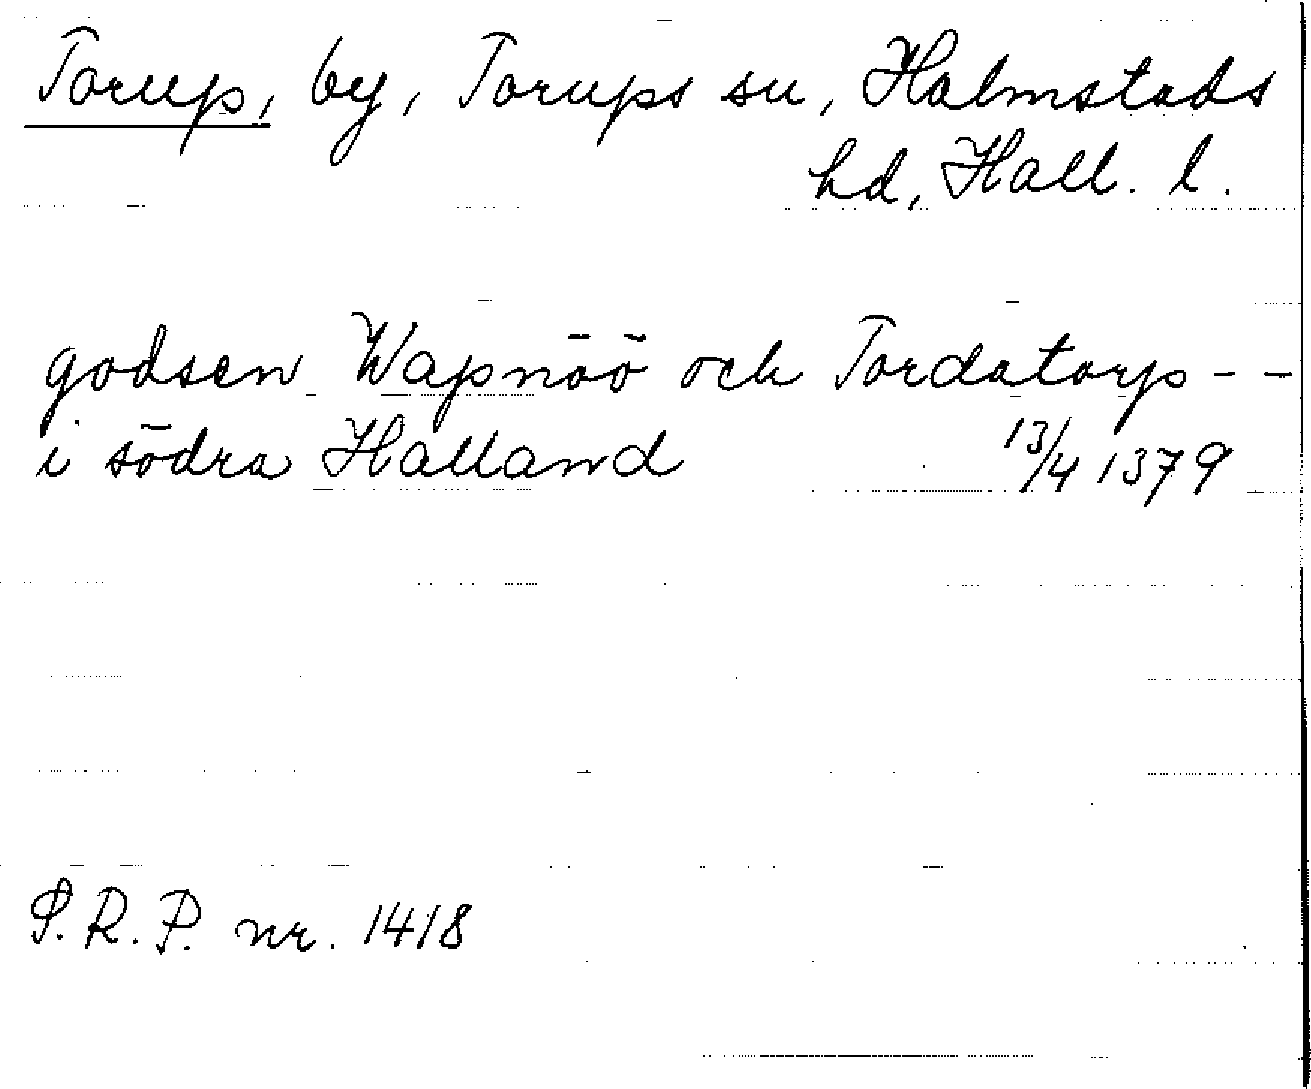 Torup, by, Torups sn, Halmstads
hd, Hall. l.
godsen Wapnöö och Tordatorp - -
i södra Halland 13/4 1379
S.R.P. nr. 1418